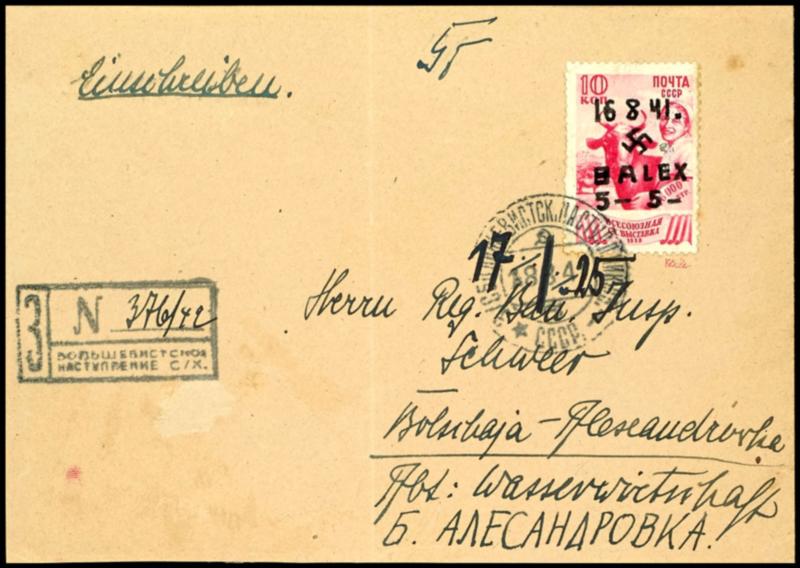 Einschreiben.
10 КОП
ПОЧТА СССР
16 8 41.
BALEX
5- 5-
ВСЕСОЮЗНАЯ
ВЫСТАВКА
17 25
СССР
З N 376/42
БОЛЬШЕВИСТСКОЕ
НАСТУПЛЕНИЕ С/Х.
Herrn Reg. Bau. Insp.
Schweer
Bolschaja-Alexandrovka
Abt: Wasserwirtschaft
Б. АЛЕСАНДРОВКА.